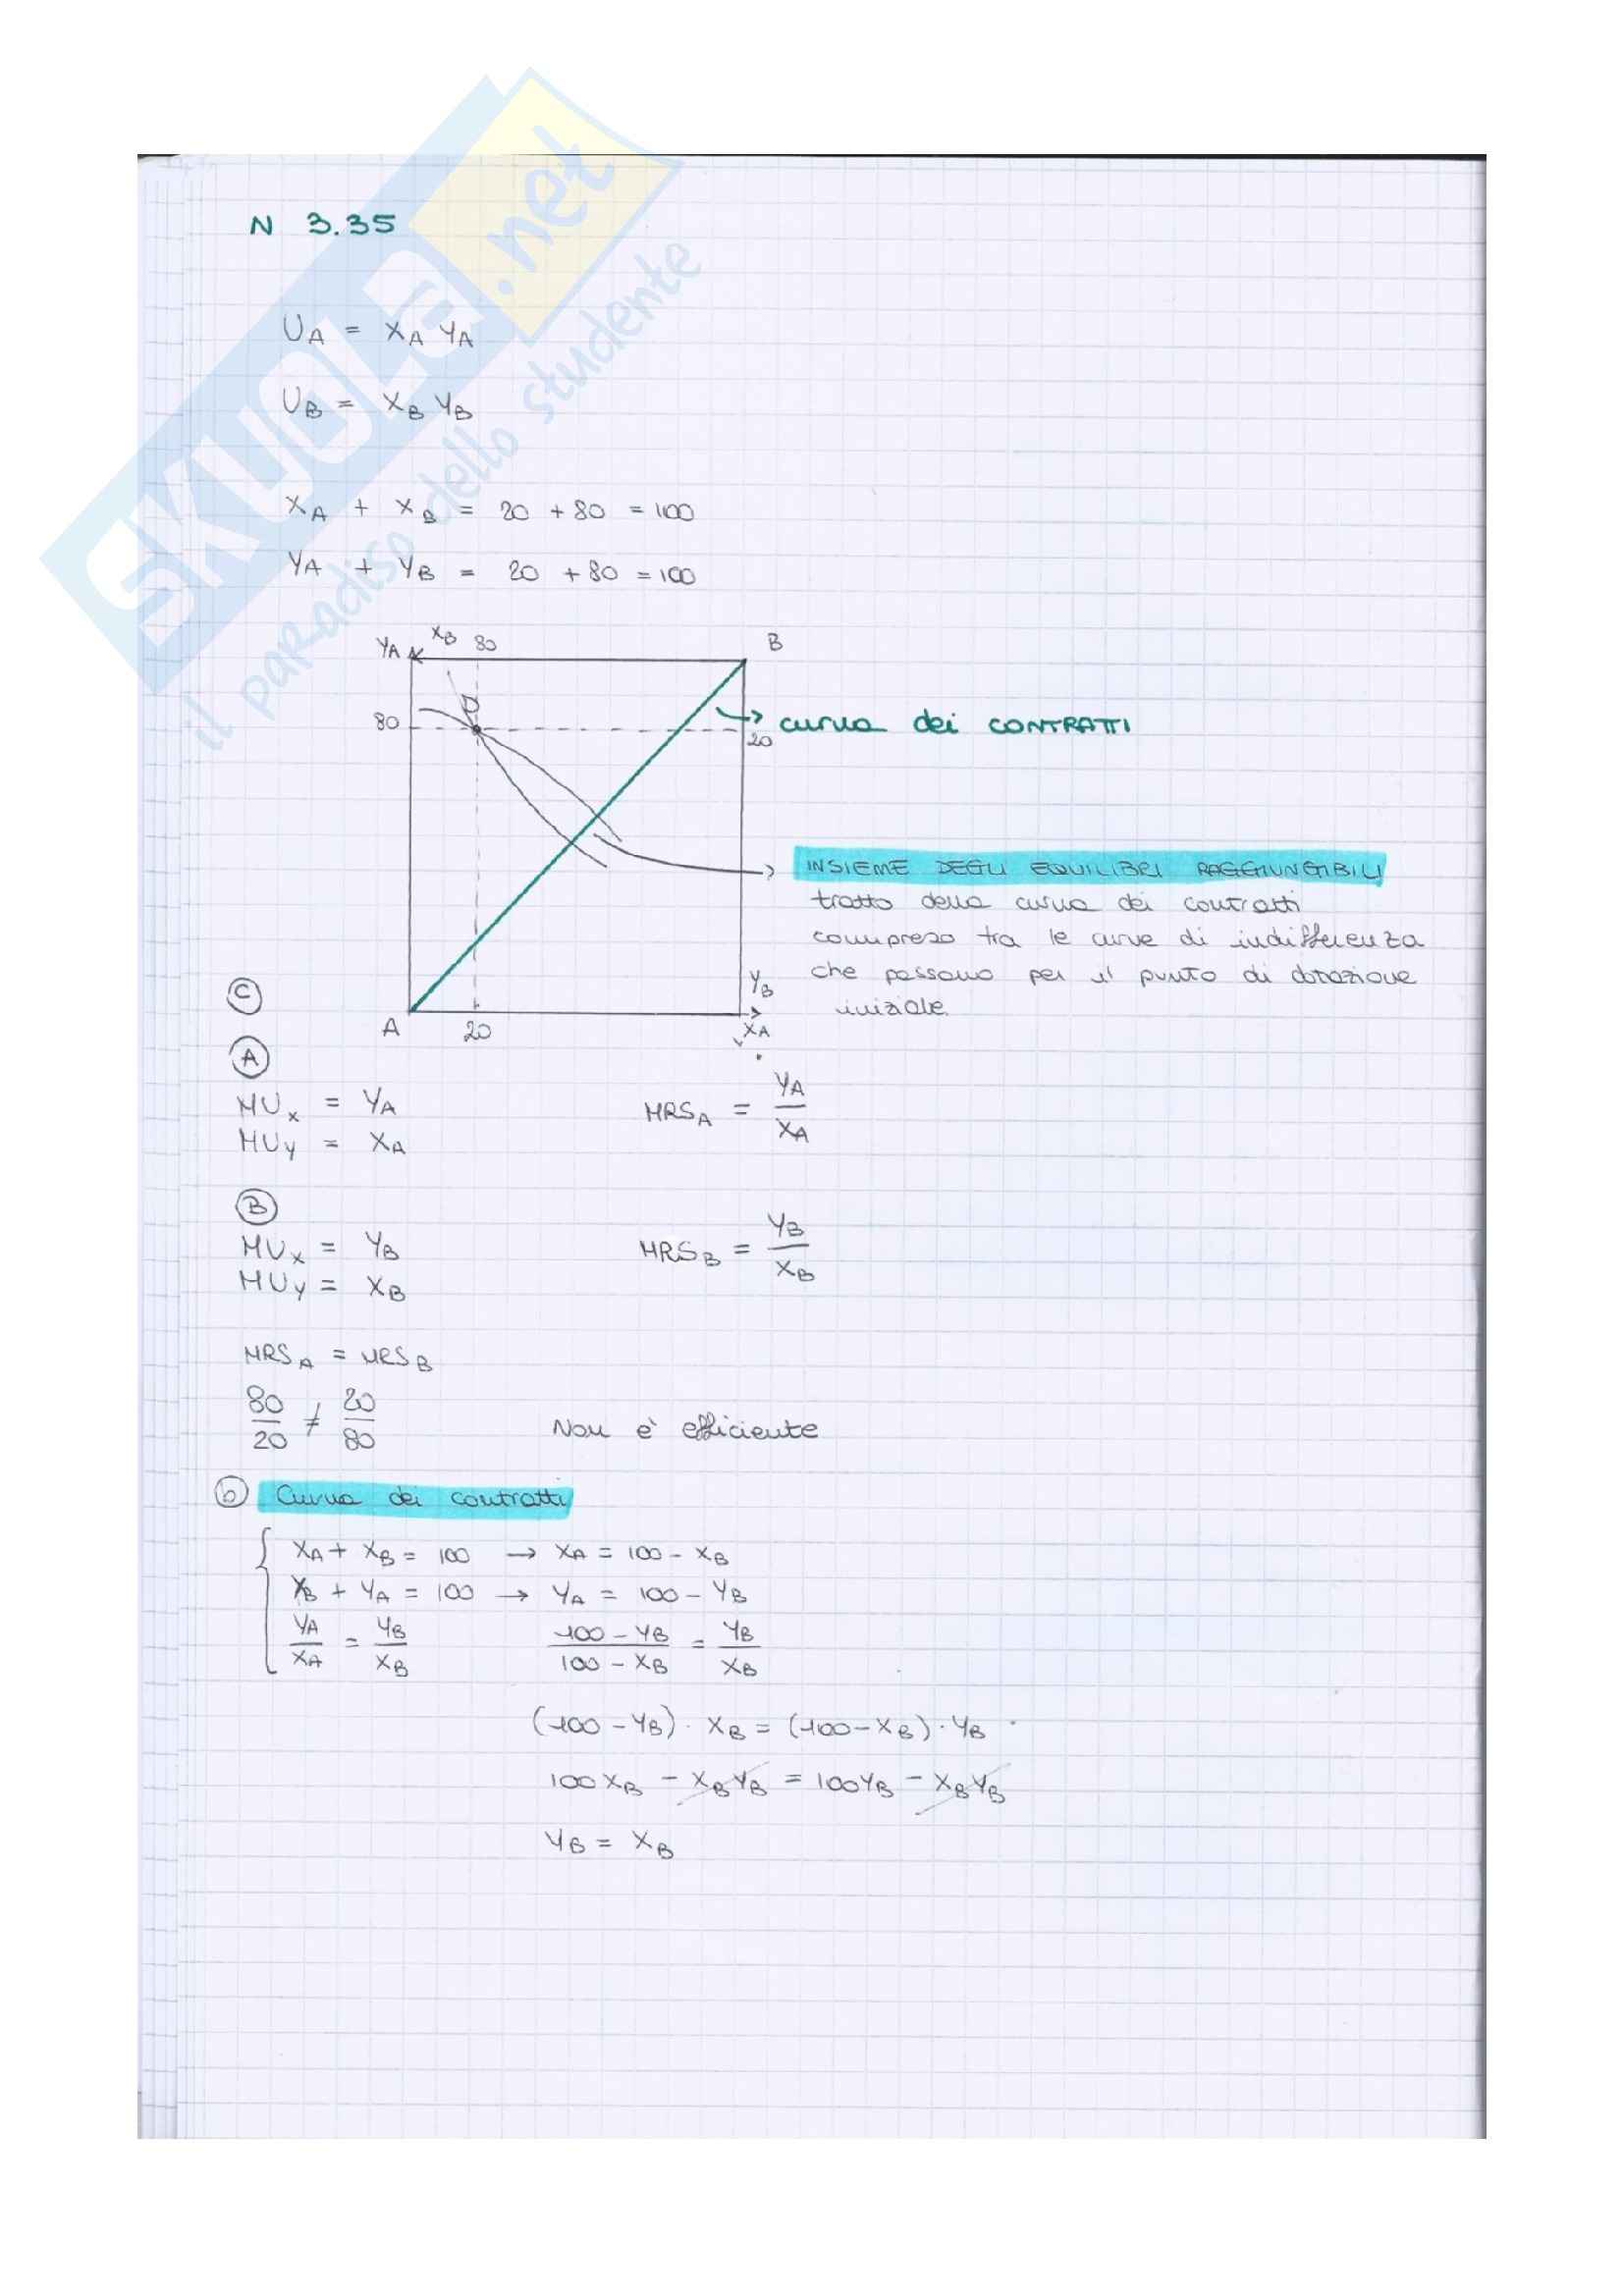 N 3.35
U_A = X_A Y_A
U_B = X_B Y_B
X_A + X_B = 20 + 80 = 100
Y_A + Y_B = 20 + 80 = 100
Y_A X_B 80 B
D
80
20
curva dei CONTRATTI
INSIEME DEGLI EQUILIBRI RAGGIUNGIBILI
tratto della curva dei contratti
compreso tra le curve di indifferenza
che passano per il punto di dotazione
iniziale
Y_B
C
A 20 X_A
A
MU_X = Y_A
MU_Y = X_A
MRS_A = Y_A / X_A
B
MU_X = Y_B
MU_Y = X_B
MRS_B = Y_B / X_B
MRS_A = MRS_B
80/20 ≠ 20/80 Non è efficiente
b Curva dei contratti
X_A + X_B = 100 → X_A = 100 - X_B
Y_B + Y_A = 100 → Y_A = 100 - Y_B
Y_A / X_A = Y_B / X_B (100 - Y_B) / (100 - X_B) = Y_B / X_B
(100 - Y_B) · X_B = (100 - X_B) · Y_B
100 X_B - X_B Y_B = 100 Y_B - X_B Y_B
Y_B = X_B
SKUOLA.net
il paradiso dello studente